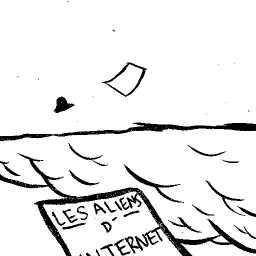 LES ALIENS
D'
INTERNET